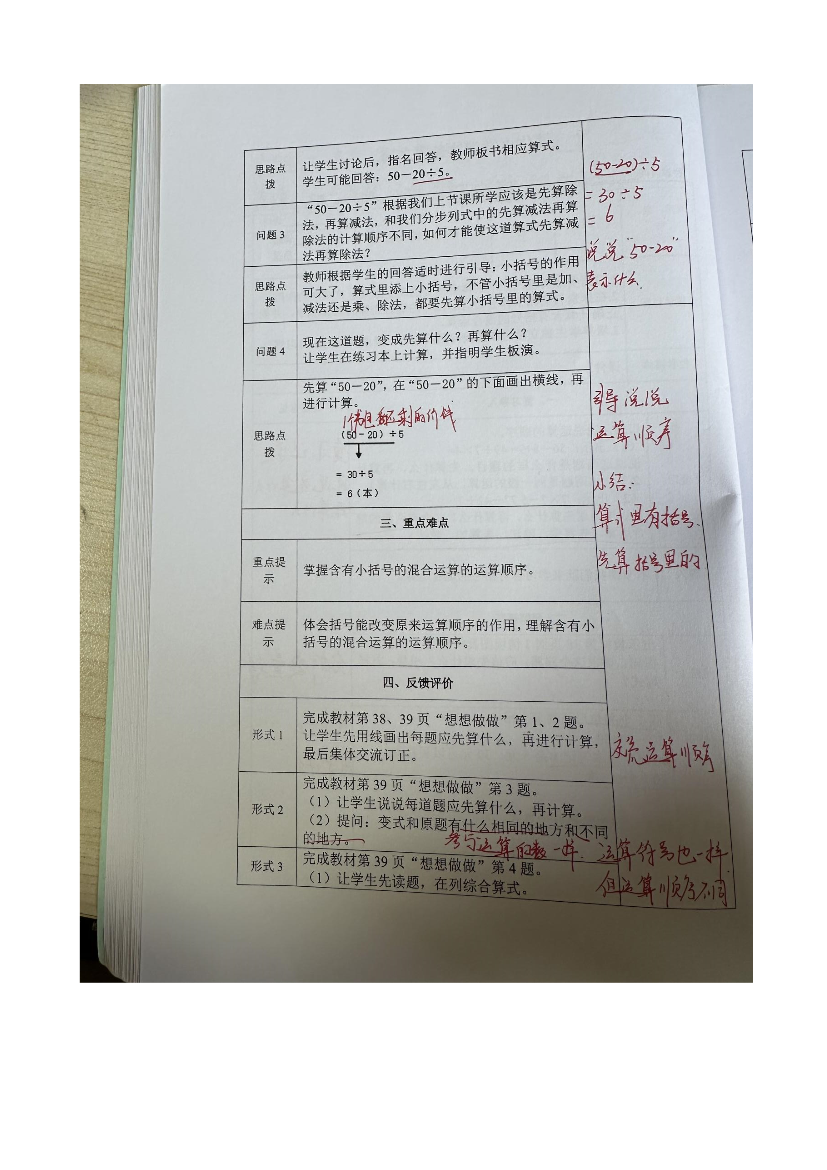 思路点
拨
让学生讨论后，指名回答，教师板书相应算式。
学生可能回答：50－20÷5。
(50-20)÷5
= 30÷5
= 6
说说“50-20”
表示什么
问题 3
“50－20÷5”根据我们上节课所学应该是先算除
法，再算减法，和我们分步列式中的先算减法再算
除法的计算顺序不同，如何才能使这道算式先算减
法再算除法？
思路点
拨
教师根据学生的回答适时进行引导：小括号的作用
可大了，算式里添上小括号，不管小括号里是加、
减法还是乘、除法，都要先算小括号里的算式。
问题 4
现在这道题，变成先算什么？再算什么？
让学生在练习本上计算，并指明学生板演。
思路点
拨
先算“50－20”，在“50－20”的下面画出横线，再
进行计算。
剩的价钱
(50－20)÷5
= 30÷5
= 6（本）
引导说说
运算顺序
小结：
算式里有括号、
先算括号里的
三、重点难点
重点提
示
掌握含有小括号的混合运算的运算顺序。
难点提
示
体会括号能改变原来运算顺序的作用，理解含有小
括号的混合运算的运算顺序。
四、反馈评价
形式 1
完成教材第 38、39 页“想想做做”第 1、2 题。
让学生先用线画出每题应先算什么，再进行计算，
最后集体交流订正。
交流运算顺序
形式 2
完成教材第 39 页“想想做做”第 3 题。
（1）让学生说说每道题应先算什么，再计算。
（2）提问：变式和原题有什么相同的地方和不同
的地方。
参与运算的数一样. 运算符号也一样
但运算顺序不同
形式 3
完成教材第 39 页“想想做做”第 4 题。
（1）让学生先读题，在列综合算式。